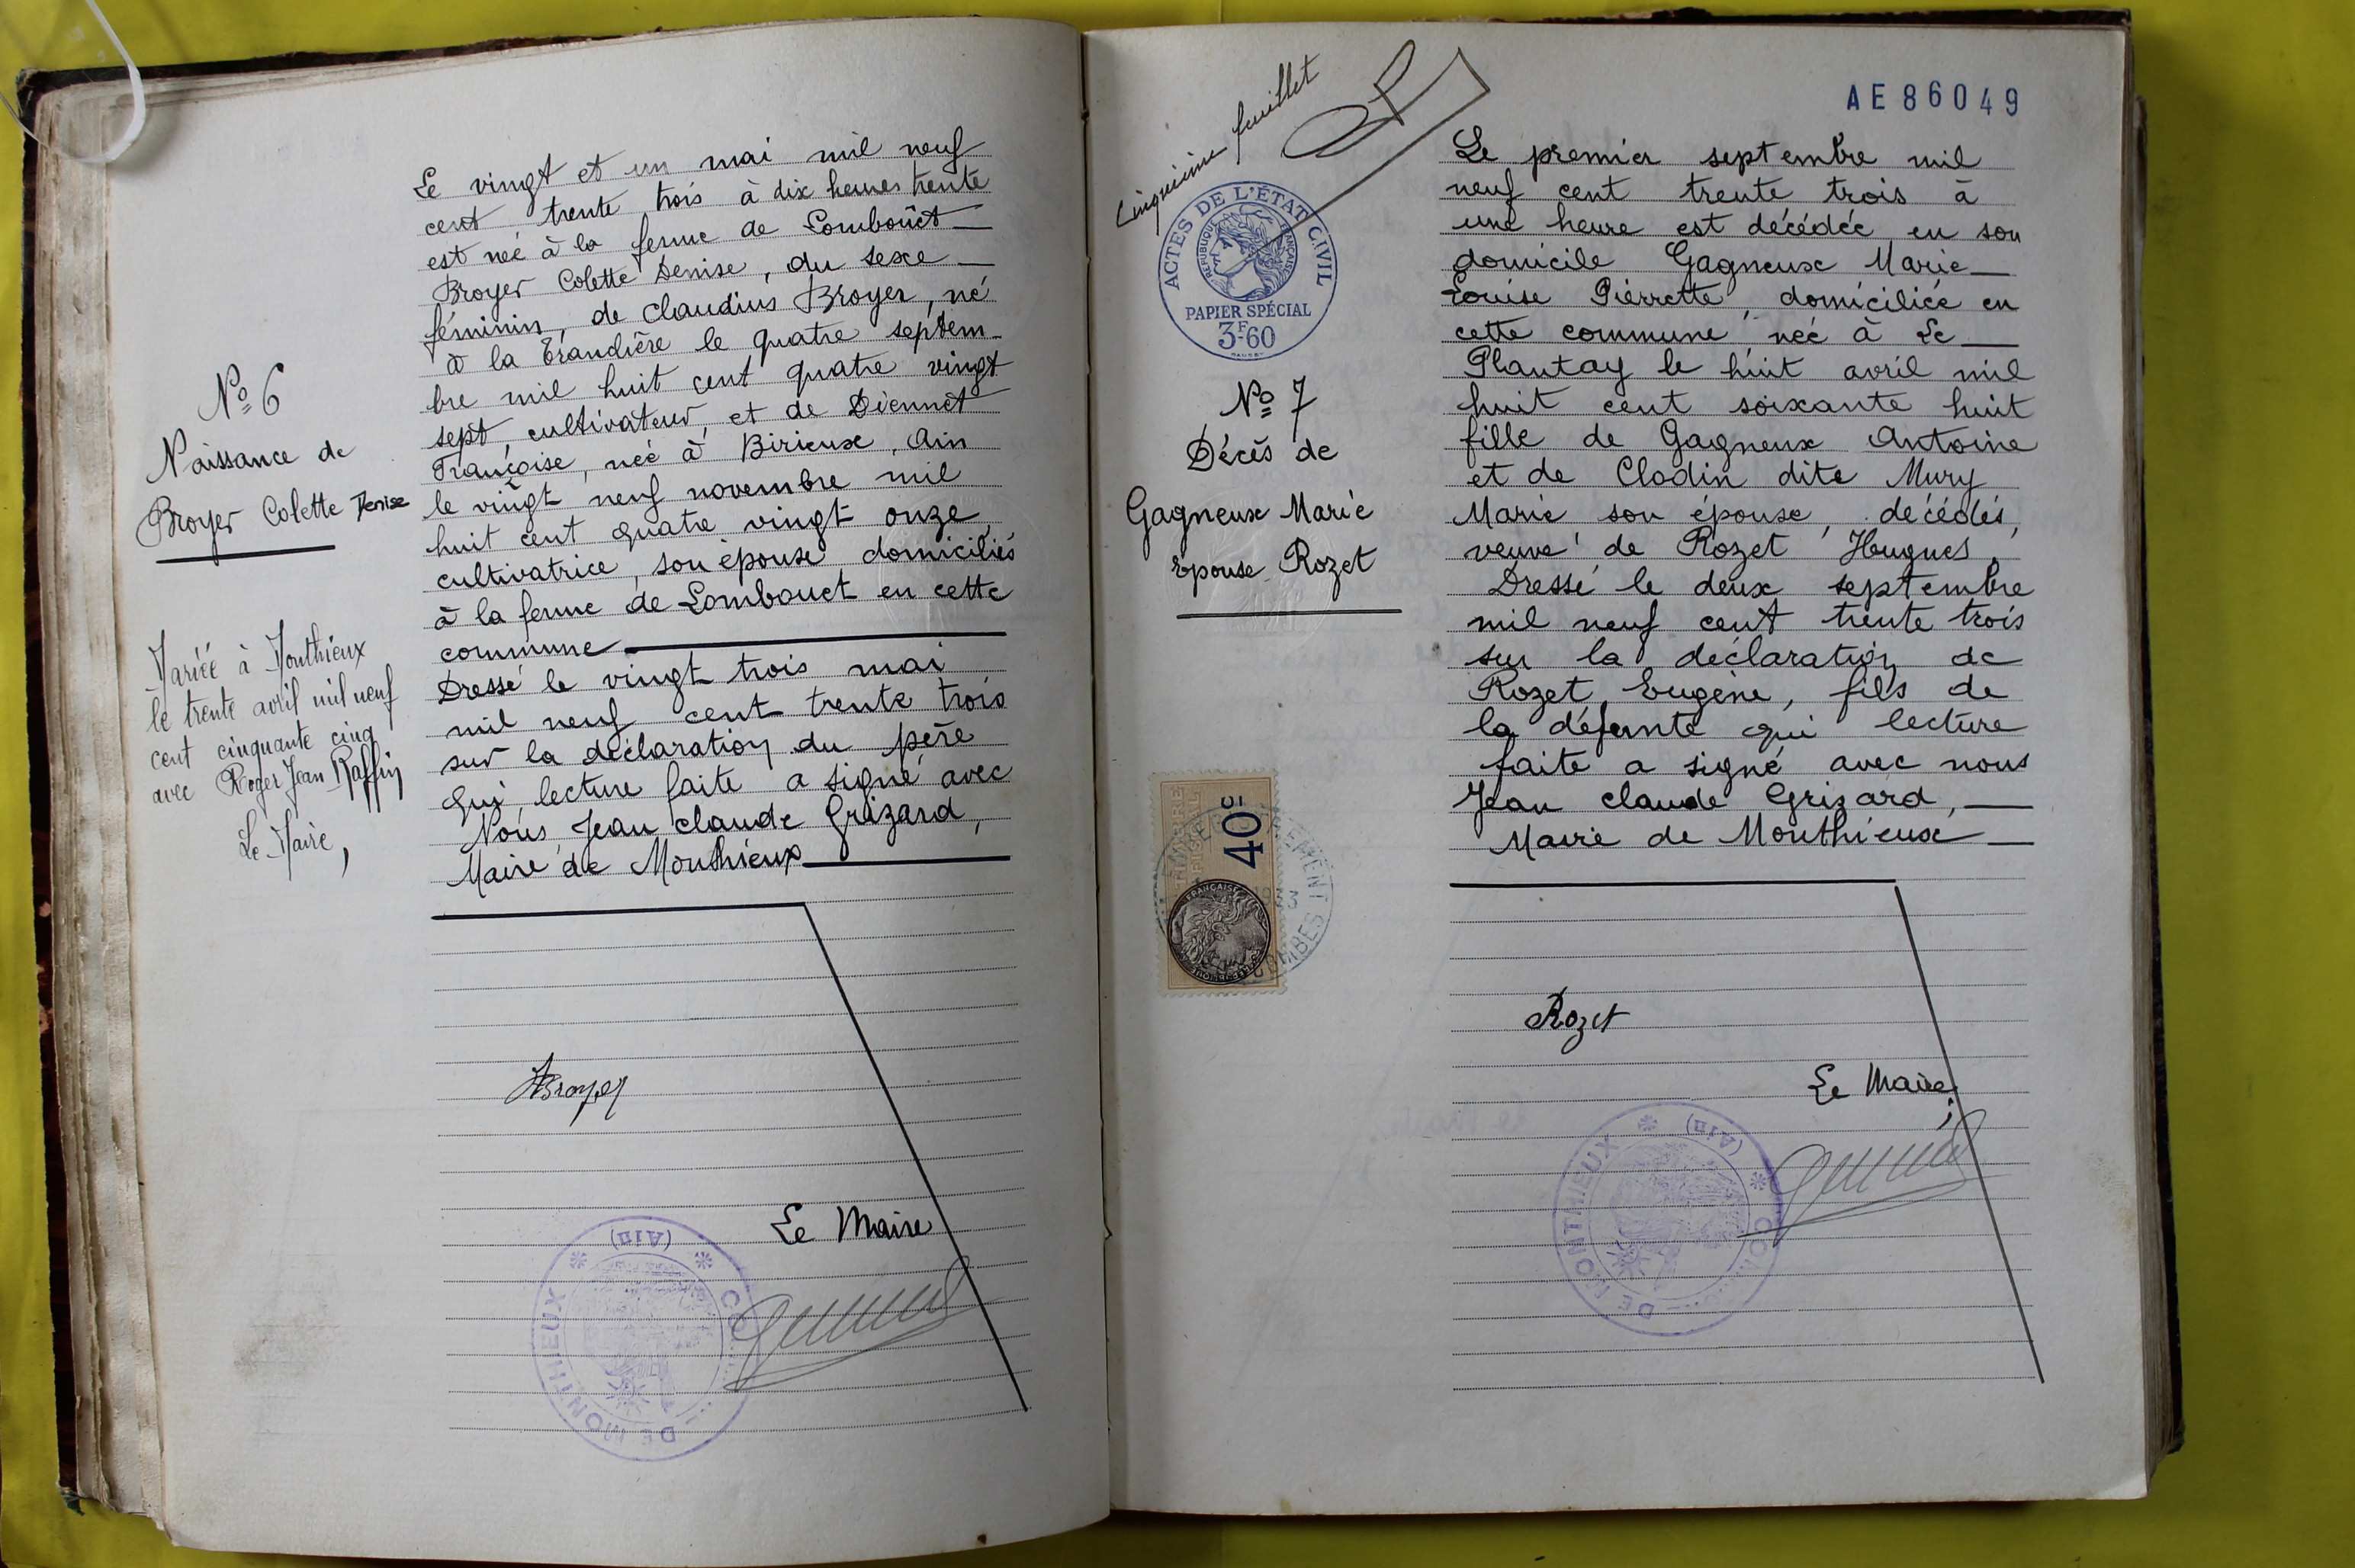 Le vingt et un mai mil neuf
cent trente trois à dix heures trente
est née à la ferme de Lomboüet
Broyer Colette Denise, du sexe
féminin, de Claudius Broyer, né
à la Trandière le quatre septem
bre mil huit cent quatre vingt
sept, cultivateur, et de Diennet
Françoise, née à Birieux, Ain
le vingt neuf novembre mil
huit cent quatre vingt onze,
cultivatrice, son épouse domiciliés
à la ferme de Lombouet en cette
commune
Dressé le vingt trois mai
mil neuf cent trente trois
sur la déclaration du père
qui, lecture faite a signé avec
Nous Jean claude Grizard,
Maire de Monthieux
Nº 6
Naissance de
Broyer Colette Denise
Mariée à Monthieux
le trente avril mil neuf
cent cinquante cinq
avec Roger Jean Raffin
Le Maire,
Broyer
Le Maire
COMMUNE DE MONTHIEUX
(Ain)
Cinquième feuillet
AE86049
ACTES DE L'ÉTAT CIVIL
RÉPUBLIQUE FRANÇAISE
PAPIER SPÉCIAL
3F.60
Nº 7
Décès de
Gagneux Marie
Epouse Rozet
40c
Le premier septembre mil
neuf cent trente trois à
une heure est décédée en son
domicile Gagneux Marie
Louise Pierrette, domiciliée en
cette commune née à Le
Plantay le huit avril mil
huit cent soixante huit
fille de Gagneux Antoine
et de Clodin dite Mury
Marie son épouse, décédés,
veuve de Rozet Hugues.
Dressé le deux septembre
mil neuf cent trente trois
sur la déclaration de
Rozet Eugène, fils de
la défunte qui lecture
faite a signé avec nous
Jean claude Grizard,
Maire de Monthieux
Rozet
Le Maire
COMMUNE DE MONTHIEUX
(Ain)